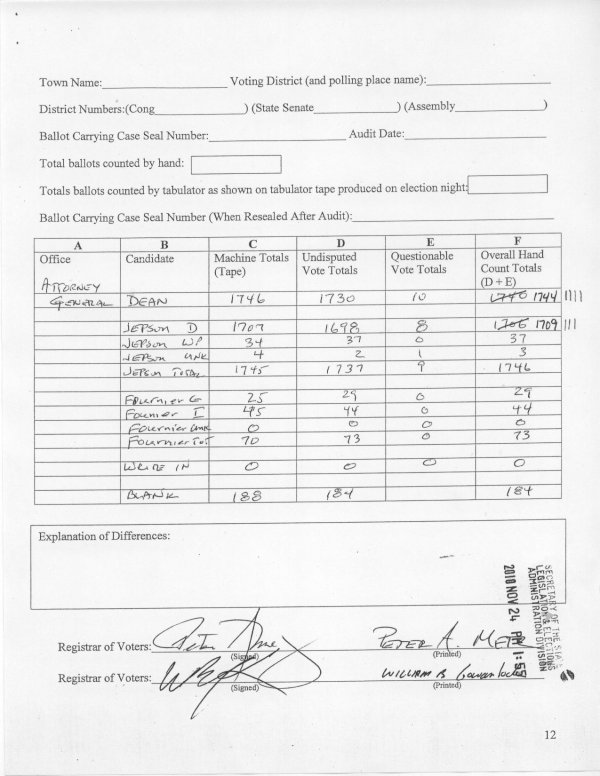 Town Name: Voting District (and polling place name):
District Numbers:(Cong ) (State Senate ) (Assembly )
Ballot Carrying Case Seal Number: Audit Date:
Total ballots counted by hand:
Totals ballots counted by tabulator as shown on tabulator tape produced on election night:
Ballot Carrying Case Seal Number (When Resealed After Audit):
A B C D E F
Office Candidate Machine Totals (Tape) Undisputed Vote Totals Questionable Vote Totals Overall Hand Count Totals (D + E)
ATTORNEY
GENERAL DEAN 1746 1730 10 1740 1744 ||||
JEPSON D 1707 1698 8 1706 1709 |||
JEPSON WP 34 37 0 37
JEPSON UNK 4 2 1 3
JEPSON TOTAL 1745 1737 9 1746
FOURNIER G 25 29 0 29
FOURNIER I 45 44 0 44
FOURNIER UNK 0 0 0 0
FOURNIER TOT 70 73 0 73
WRITE IN 0 0 0 0
BLANK 188 184 184
Explanation of Differences:
SECRETARY OF THE STATE
LEGISLATION & ELECTIONS
ADMINISTRATION DIVISION
2010 NOV 24 PM 1:55
Registrar of Voters: PETER A.
(Signed) (Printed)
Registrar of Voters: WILLIAM B
(Signed) (Printed)
12